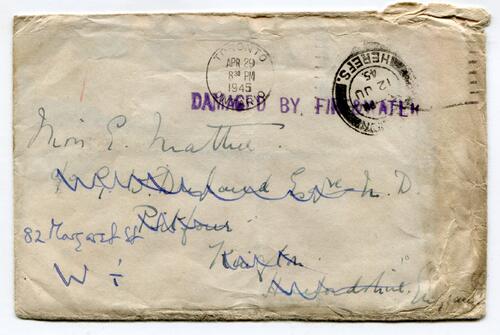 TORONTO
APR 29
8 30 PM
1945
HEREFS.
12 JU
45
DAMAGED BY FIRE & WATER
Miss E. Mather
Esqre M.D.
82 Margaret St
Kington
W 1
Herefordshire, England